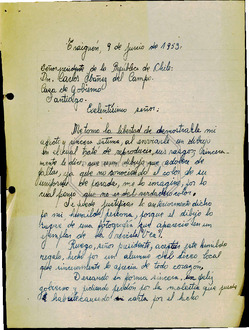 Traiguén, 9 de junio de 1953.
Señor presidente de la República de Chile
Dn. Carlos Ibáñez del Campo.
Casa de Gobierno
Santiago.
Exelentísimo señor:
Me tomo la libertad de demostrarle mi
afecto y sincera estima, al enviarle un dibujo
en el cual trato de reproducir sus rasgos; sincera-
mente le diré; que este dibujo que adolece de
faltas, ya que no conociendo el color de su
uniforme de parada, me lo imaginé, por lo
cual que no es del verdadero color.
Se puede justificar lo anteriormente dicho
por mi humilde persona, porque el dibujo lo
de una fotografía que apareció en un
ejemplar de la
Ruego, señor presidente, aceptar este humilde
regalo, hecho por un alumno del liceo local
que sinceramente lo aprecia de todo corazón,
Deseando en forma sincera, un feliz
gobierno y pidiendo perdón por la molestia que puede
haber causado mi carta por el hecho